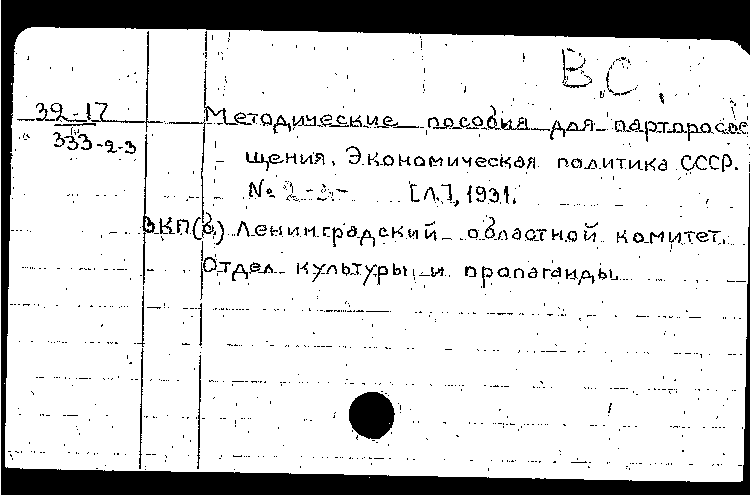 В.С.
39-17
333-2-3
Методические пособия для партпросве
щения. Экономическая политика СССР.
№ 2-3- [Л.], 1931.
ВКП(б.) Ленинградский областной комитет.
Отдел культуры и пропаганды